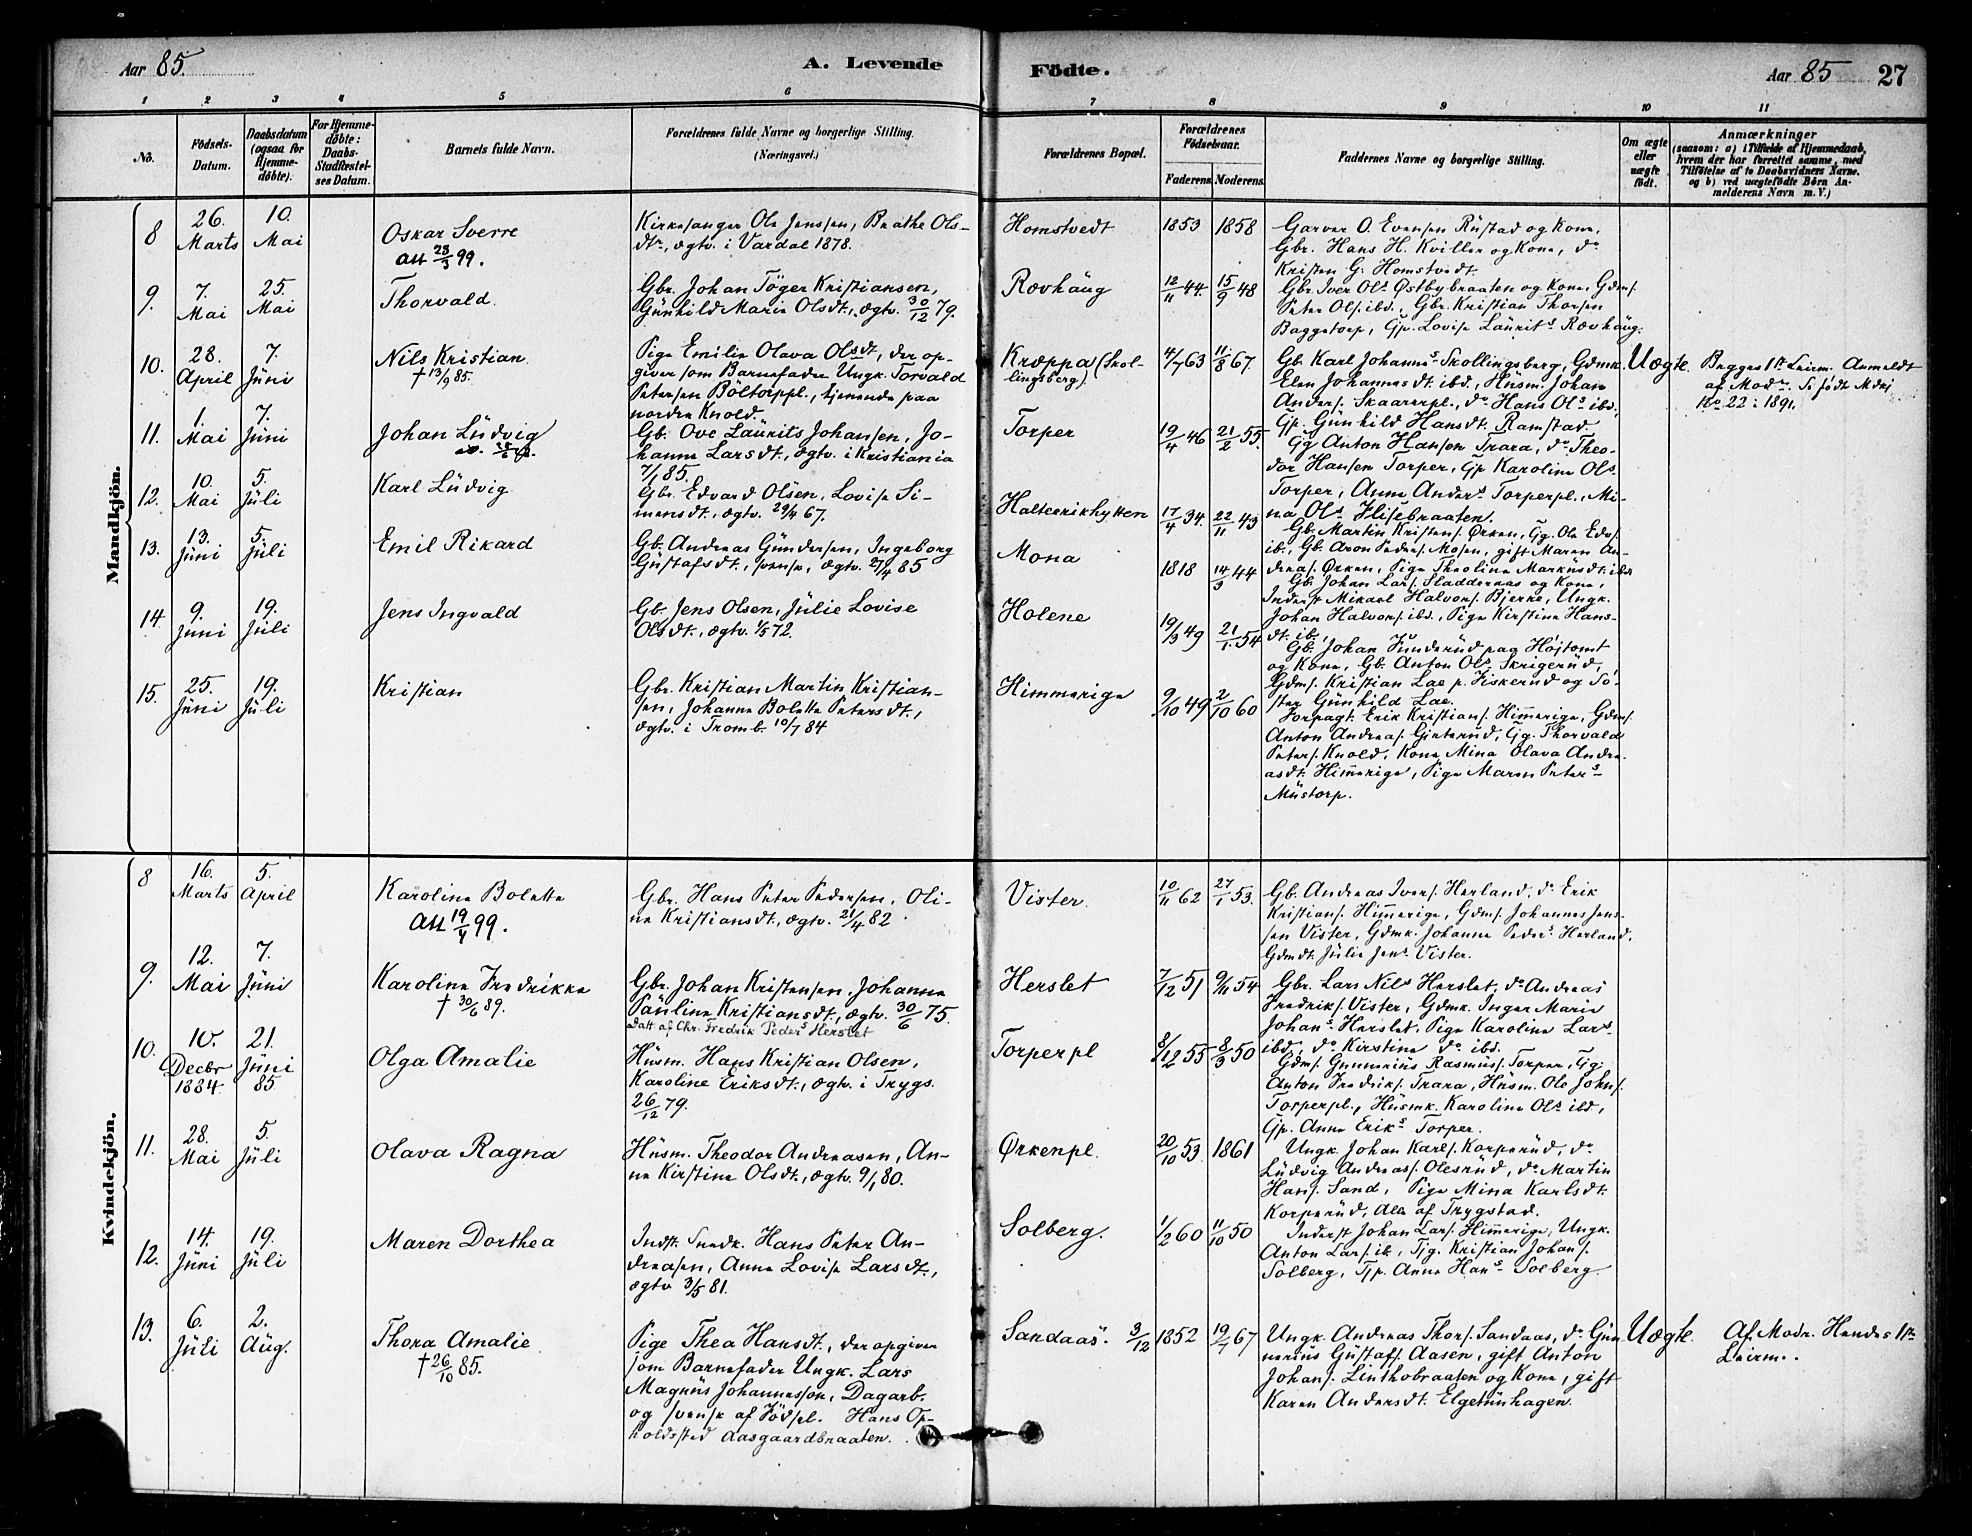 Aar 85.
A. Levende Födte.
Aar 85 27
1 2 3 4 5 6 7 8 9 10 11
No.
Födsels-
Datum.
Daabsdatum
(ogsaa for
Hjemme-
döbte).
For Hjemme-
döbte:
Daabs-
Stadfæstel-
ses Datum.
Barnets fulde Navn.
Forældrenes fulde Navne og borgerlige Stilling.
(Næringsvei.)
Forældrenes Bopæl.
Forældrenes
Födselsaar.
Faderens. Moderens.
Faddernes Navne og borgerlige Stilling.
Om ægte
eller
uægte
födt.
Anmærkninger
(saasom: a) i Tilfælde af Hjemmedaab,
hvem der har forrettet samme, med
Tilföielse af to Daabsvidners Navne,
og b) ved uægtefödte Börn An-
melderens Navn m. V.)
Mandkjön.
8
26.
Marts
10.
Mai
Oskar Sverre
att 28/3 99.
Kirkesanger Ole Jenssen, Beathe Ols-
dtr, ægtv. i Vardal 1878.
Homstvedt
1853 1858
Garver O. Evensen Rüstad og Kone,
Gbr. Hans H. Kviller og Kone, do
Kristen G. Homstvedt.
9.
7.
Mai
25.
Mai
Thorvald.
Gbr. Johan Töger Kristiansen,
Günhild Marie Olsdt., ægtv. 30/12 79.
Rævhäug
12/11 44. 15/9 48
Gbr. Iver Ols Østbybraaten og Kone, Gdms.
Peter Ols. ibd., Gbr. Kristian Thorsen
Baggetorp, Gp. Lovise Laurits Rævhäug.
10.
28.
April
7.
Jüni
Nils Kristian.
† 13/9 85.
Pige Emilie Olava Olsdt, der op-
giver som Barnefader Ungk. Torvald
Petersen Böltorppl., tjenende paa
nordre Knold.
Kræppa (Skol-
lingsberg)
4/7 63 11/8 67.
Gb. Karl Johannes Skollingsberg, Gdmk.
Elen Johannesdt. ibd., Hüsm. Johan
Anders. Skaarerpl., do Hans Ols ibd.,
Gp. Günhild Hansdt. Ramstad
Uægte.
Begges 1te Leirm. Anmeldt
af Modr. Se födte Mkj
No 22 i 1891.
11.
1.
Mai
7.
Jüni
Johan Lüdvig
Gb. Ove Laürits Johansen, Jo-
hanne Larsdt., ægtv. i Kristiania
7/1 85.
Torper
19/4 46 21/2 55.
Gg Anton Hansen Trara, do Theo-
dor Hansen Torper, Gp Karoline Ols
Torper, Anne Anders Torperpl., Mi-
na Ols Hisebraaten.
12.
10.
Mai
5.
Jüli
Karl Lüdvig
Gbr. Edvard Olsen, Lovise Si-
mensdt., ægtv. 29/4 67.
Halteerikhytten
17/4 34. 22/11 43
Gb. Martin Kristens. Ørken, Gg. Ole Edvs.
ib., Gb. Aron Peders. Mosen, gift Maren An-
dreas. Ørken, Pige Theoline Markusdt. ibd.
13.
13.
Jüni
5.
Jüli
Emil Rikard
Gb. Andreas Gündersen, Ingeborg
Güstafsdt., svensk, ægtv. 27/4 85
Mona
1818 14/3 44
Gb. Johan Lars. Sladdernæs og Kone,
Inderst Mikael Halvors. Bjerke, Ungk.
Johan Halvors. ibd., Pige Kirstine Hans-
dt. ib.
14
9.
Juni
19.
Jüli
Jens Ingvald
Gb. Jens Olsen, Jülie Lovise
Olsdt., ægtv. 1/5 72.
Holene
19/3 49 21/1. 54
Gb. Johan Funderüd paa Höjtomt
og Kone, Gb. Anton Ols. Skrigerüd,
Gdms. Kristian Lae p. Fiskerüd og Sö-
ster Günhild Lae.
15.
25.
Jüni
19.
Jüli
Kristian
Gbr. Kristian Martin Kristian-
sen, Johanne Bolette Petersdt.,
ægtv. i Tromb. 10/7 84
Himmerige
9/10 49 2/10 60
Forpagt. Erik Kristians. Himerige, Gdms.
Anton Andreas. Ginterüd, Gg. Thorvald
Peters. Knold, Kone Mina Olava Andre-
asdt. Himerige, Pige Maren Peters
Müstorp.
Kvindekjön.
8
16.
Marts
5.
April
Karoline Bolette
att 19/4 99.
Gbr. Hans Peter Pedersen, Oli-
ne Kristiansdt., ægtv. 21/4 82
Vister.
10/11 62 27/1 53.
Gb. Andreas Ivers. Herland, do Erik
Kristians. Himerige, Gdms. Johannes Jens-
sen Vister, Gdmk. Johanne Peders Herland,
Gdmdt. Jülie Jens Vister.
9.
12.
Mai
7.
Jüni
Karoline Fredrikke
† 30/6 89.
Gbr. Johan Kristensen, Johanne
Päuline Kristiansdt., ægtv. 30/6 75.
Datt. af Chr. Fredrik Peders Herslet
Herslet
7/12 51 9/11 54
Gbr. Lars Nils Herslet, do Andreas
Fredriks. Vister, Gdmk. Inger Marie
Johans Herslet, Pige Karoline Lars
ibd., do Kirstine do ibd.
10.
10.
Decbr
1884.
21.
Jüni
85
Olga Amalie
Hüsm. Hans Kristian Olsen,
Karoline Eriksdt., ægtv. i Trygs.
26/12 79.
Torperpl
8/12 55 8/3 50
Gdms. Gunnerius Rasmüs. Torper, Gg.
Anton Fredriks. Trara, Hüsm. Ole Johs.
Torperpl., Hüsmk. Karoline Ols ibd,
Gp. Anne Eriks Torper.
11.
28.
Mai
5.
Jüli
Olava Ragna
Hüsm. Theodor Andreasen, An-
ne Kirstine Olsdt., ægtv. 9/1 80.
Ørkenpl.
20/10 53. 1861
Ungk. Johan Karls. Korperüd, do
Lüdvig Andreas. Olesrüd, do Martin
Hans. Sand, Pige Mina Karlsdt.
Korperüd, Alle af Trygstad.
12.
14.
Jüni
19.
Jüli
Maren Dorthea
Indst. Snedk. Hans Peter An-
dreasen, Anne Lovise Larsdt.,
ægtv 3/5 81.
Solberg.
1/2 60 11/10 50
Inderst Johan Lars. Himerige, Ungk.
Anton Lars. ib, Tjg. Kristian Johans.
Solberg, Tjp. Anne Hans Solberg.
13.
6.
Jüli
2.
Aüg.
Thora Amalie
† 26/10 85.
Pige Thea Hansdt., der opgiver
som Barnefader Ungk. Lars
Magnüs Johannesson, Dagarb.
og svensk af Födsel. Hans Op-
holdssted Aasgaardbraaten.
Sandaas.
3/12 1852 19/7 67
Ungk. Andreas Thors. Sandaas, do Gün-
nerius Güstafs. Aasen, gift Anton
Johans. Linthobraaten og Kone, gift
Karen Andersdt. Elgetünhagen.
Uægte.
Af Modr. Hendes 1te
Leirm.